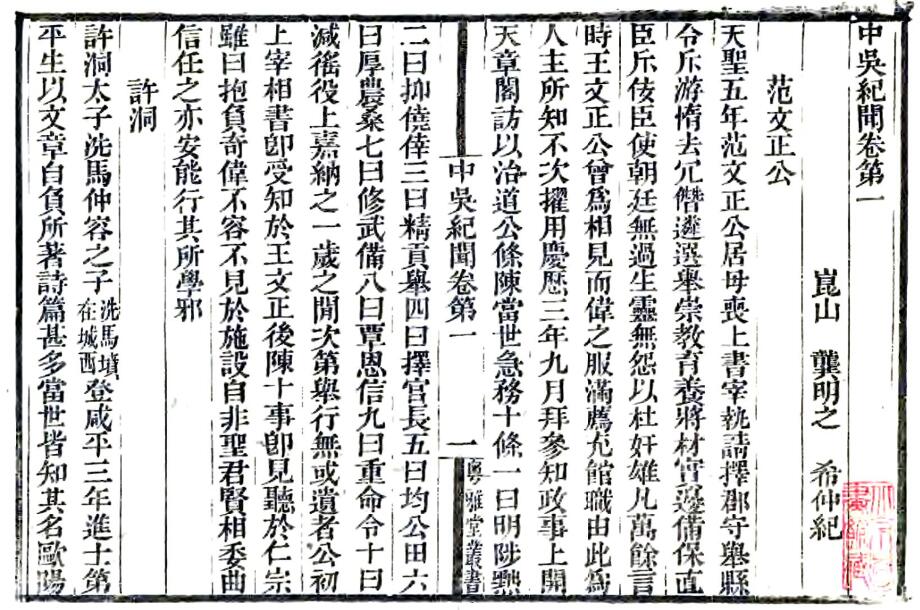 中吳紀聞卷第一
崑山 龔明之 希仲紀
范文正公
天聖五年范文正公居母喪上書宰執請擇郡守舉縣
令斥游惰去冗僭遴選舉崇教育養將材實邊備保直
臣斥佞臣使朝廷無過生靈無怨以杜奸雄凡萬餘言
時王文正公曾爲相見而偉之服滿薦充館職由此爲
人主所知不次擢用慶歷三年九月拜參知政事上開
天章閣訪以治道公條陳當世急務十條一曰明陟黜
中吳紀聞卷第一 一 粵雅堂叢書
二曰抑僥倖三曰精貢舉四曰擇官長五曰均公田六
曰厚農桑七曰修武備八曰覃恩信九曰重命令十曰
減徭役上嘉納之一歲之閒次第舉行無或遺者公初
上宰相書卽受知於王文正後陳十事卽見聽於仁宗
雖曰抱負奇偉不容不見於施設自非聖君賢相委曲
信任之亦安能行其所學邪
許洞
許洞太子洗馬仲容之子洗馬墳在城西登咸平三年進士第
平生以文章自負所著詩篇甚多當世皆知其名歐陽